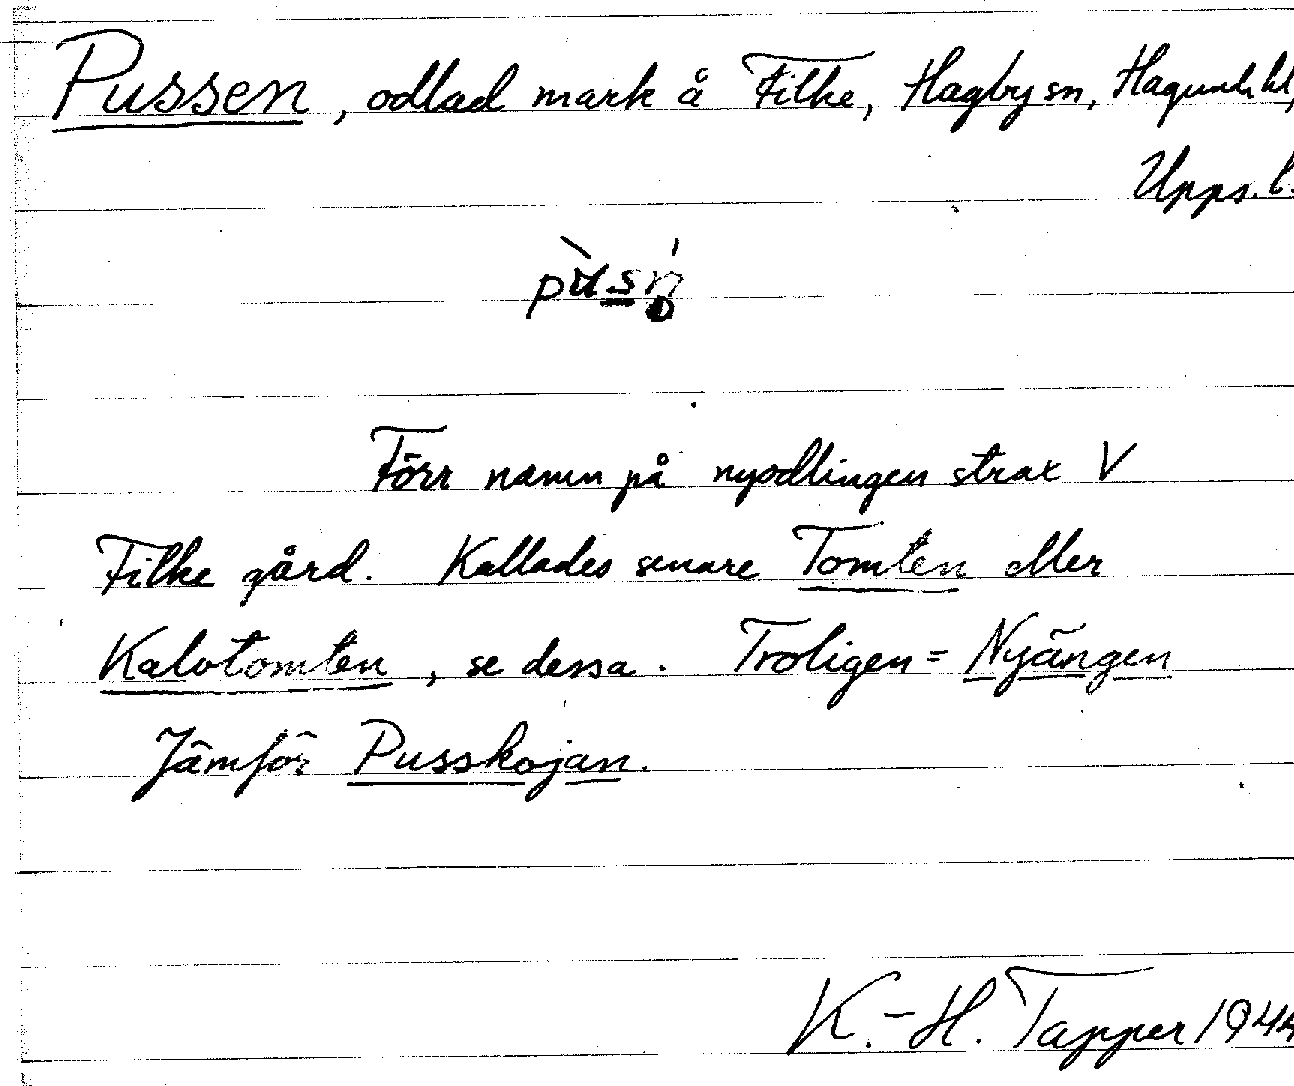 Pussen, odlad mark å Filke, Hagby sn, Hagunda hd,
Upps. l.
Förr namn på nyodlingen strax V
Filke gård. Kallades senare Tomten eller
Kalvtomten, se dessa. Troligen = Nyängen
Jämför Pusskojan.
K.-H. Tapper 1944